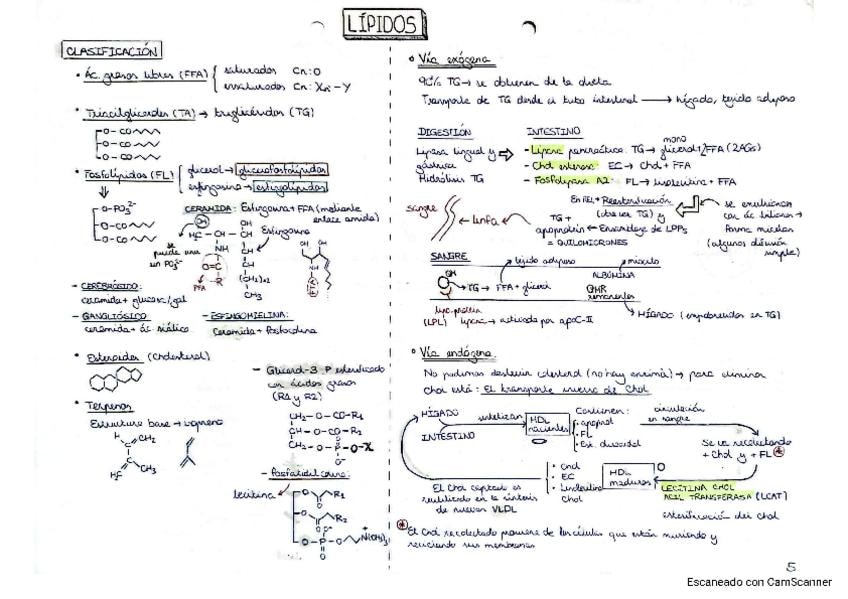 LÍPIDOS
CLASIFICACIÓN
• Ác. grasos libres (FFA)
saturados Cn:0
insaturados Cn: Xn-Y
• Triacilgliceroles (TA) → triglicéridos (TG)
O-CO
O-CO
O-CO
• Fosfolípidos (FL)
glicerol → glicerofosfolípidos
esfingosina → esfingolípidos
O-PO3²⁻
O-CO
O-CO
CERAMIDA: Esfingosina + FFA (mediante
enlace amida)
OH
H2C — CH — CH
Esfingosina
se
puede unir
un PO3²⁻
NH
CH
O=C
CH
R
(CH2)12
FFA
CH3
- CEREBRÓSIDO:
ceramida + glucosa/gal
- GANGLIÓSIDO
ceramida + ác. siálico
- ESFINGOMIELINA:
Ceramida + fosfocolina
• Esteroides (Cholesterol)
• Terpenos
Estructura base → isopreno
H
CH2
H3C
CH3
- Glicerol-3-P esterificado
con ácidos grasos
(R1 y R2)
CH2-O-CO-R1
CH-O-CO-R2
CH2-O-P-O-X
- fosfatidilcolina:
lecitina
R1
R2
O-P-O
N(CH3)3
• Vía exógena
90% TG → se obtienen de la dieta
Transporte de TG desde el tubo intestinal → hígado, tejido adiposo
DIGESTIÓN
Lipasa lingual y
gástrica
Hidrólisis TG
INTESTINO
mono
- Lipasa pancreática: TG → glicerol + FFA (2AGs)
- Chol esterasa: EC → Chol + FFA
- Fosfolipasa A2: FL → lisolecitina + FFA
sangre
linfa
En REL + Reesterificación
TG +
apoprotein ← Ensamblaje de LPPs
= QUILOMICRONES
se emulsionan
con ác. biliares →
forma micelas
SANGRE
tejido adiposo
músculo
OH
→ TG → FFA + glicerol
ALBÚMINA
QMR
remanentes
lipoprotein
(LPL) lipasa → activada por apoC-II
HÍGADO (empobrecidos en TG)
• Vía endógena
No podemos destruir colesterol (no hay enzima) → para eliminar
Chol está: El transporte inverso de Chol
HÍGADO
INTESTINO
sintetizan
HDL
nacientes
Contienen:
• apoprot
• FL
• Est. discoidal
circulación
en sangre
Se va recolectando
+ Chol y + FL *
LECITINA CHOL
ACIL TRANSFERASA (LCAT)
esterificación del Chol
HDL
maduras
• Chol
• EC
• Lisolecitina
Chol
El Chol captado es
reutilizado en la síntesis
de nuevas VLDL
* El Chol recolectado proviene de las células que están muriendo y
reciclando sus membranas
5
Escaneado con CamScanner